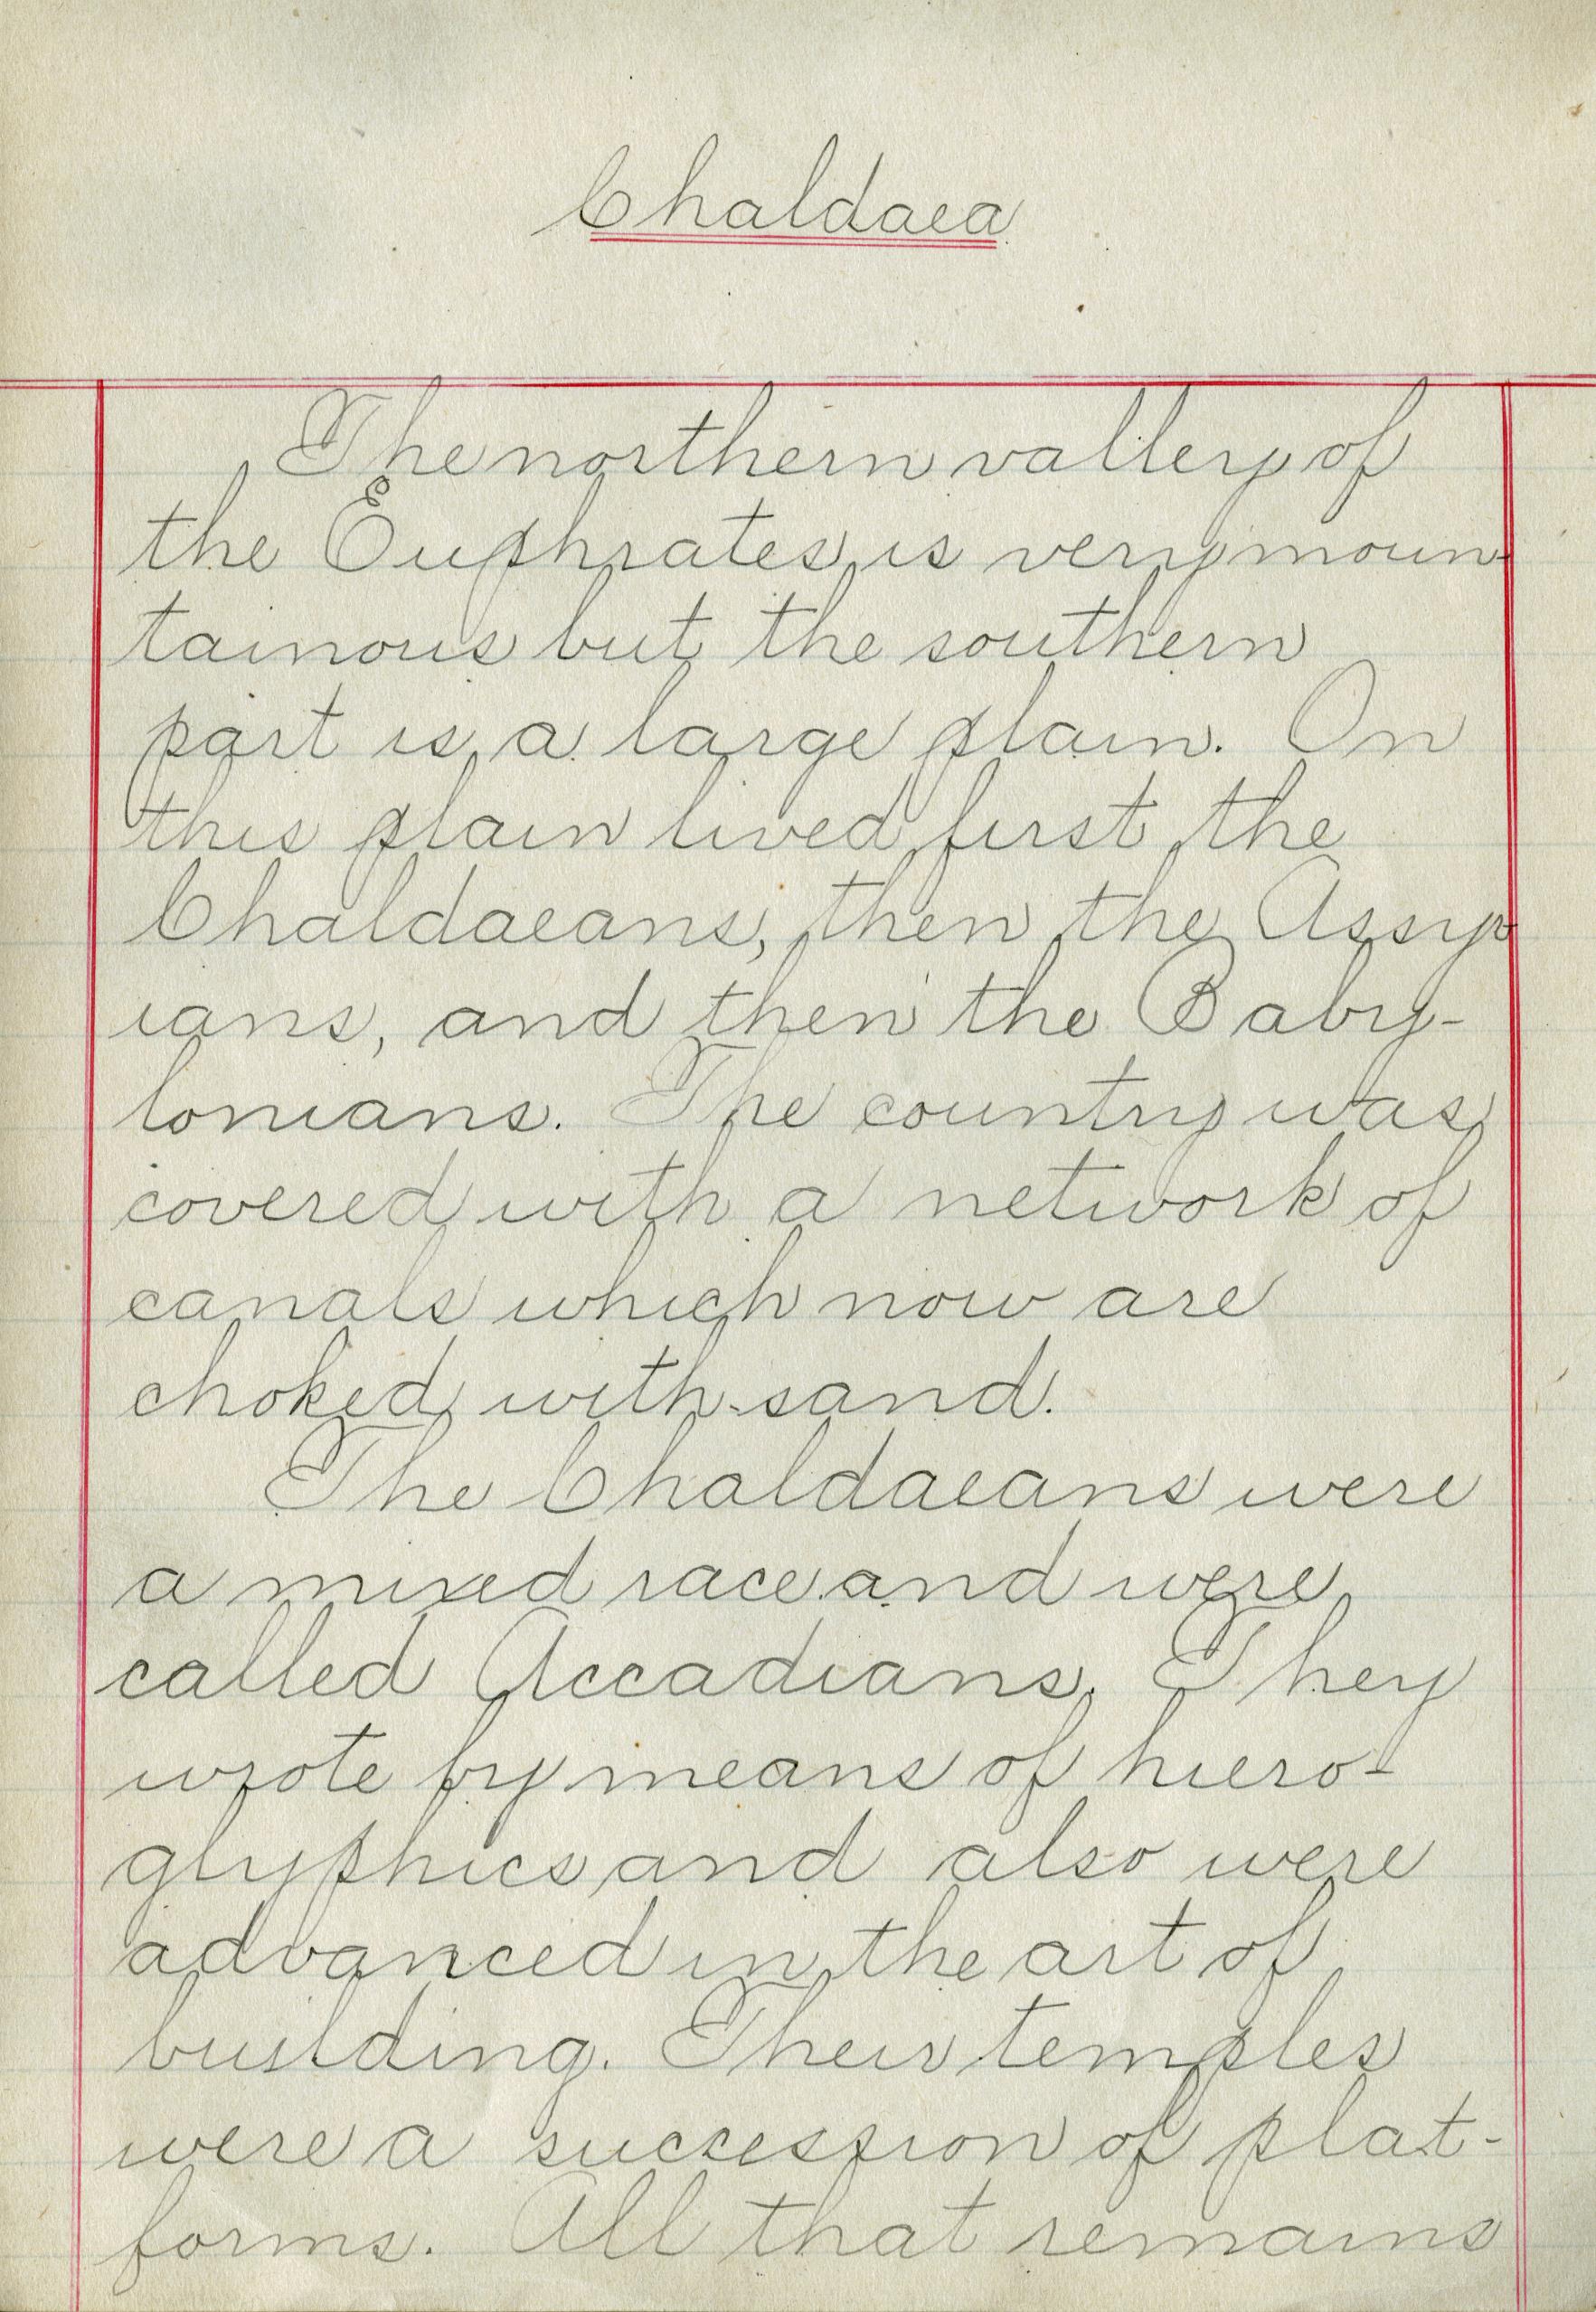 Chaldaea
The northern valley of
the Euphrates is very moun-
tainous but the southern
part is a large plain. On
this plain lived first the
Chaldaeans, then the Assyr
ians, and then the Baby-
lonians. The country was
covered with a network of
canals which now are
choked with sand.
The Chaldaeans were
a mixed race and were
called Accadians. They
wrote by means of hiero-
glyphics and also were
advanced in the art of
building. Their temples
were a succession of plat-
forms. All that remains